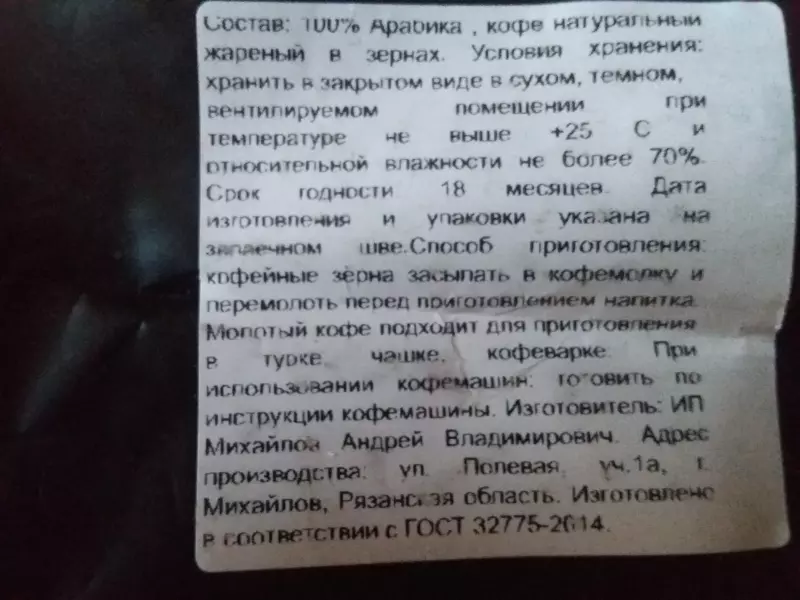 Состав: 100% Арабика , кофе натуральный
жареный в зернах. Условия хранения:
хранить в закрытом виде в сухом, темном,
вентилируемом помещении при
температуре не выше +25 С и
относительной влажности не более 70%.
Срок годности 18 месяцев. Дата
изготовления и упаковки указана на
запаечном шве.Способ приготовления:
кофейные зёрна засыпать в кофемолку и
перемолоть перед приготовлением напитка.
Молотый кофе подходит для приготовления
в турке, чашке, кофеварке. При
использовании кофемашин: готовить по
инструкции кофемашины. Изготовитель: ИП
Михайлов Андрей Владимирович. Адрес
производства: ул. Полевая, уч.1а, г.
Михайлов, Рязанская область. Изготовлено
в соответствии с ГОСТ 32775-2014.